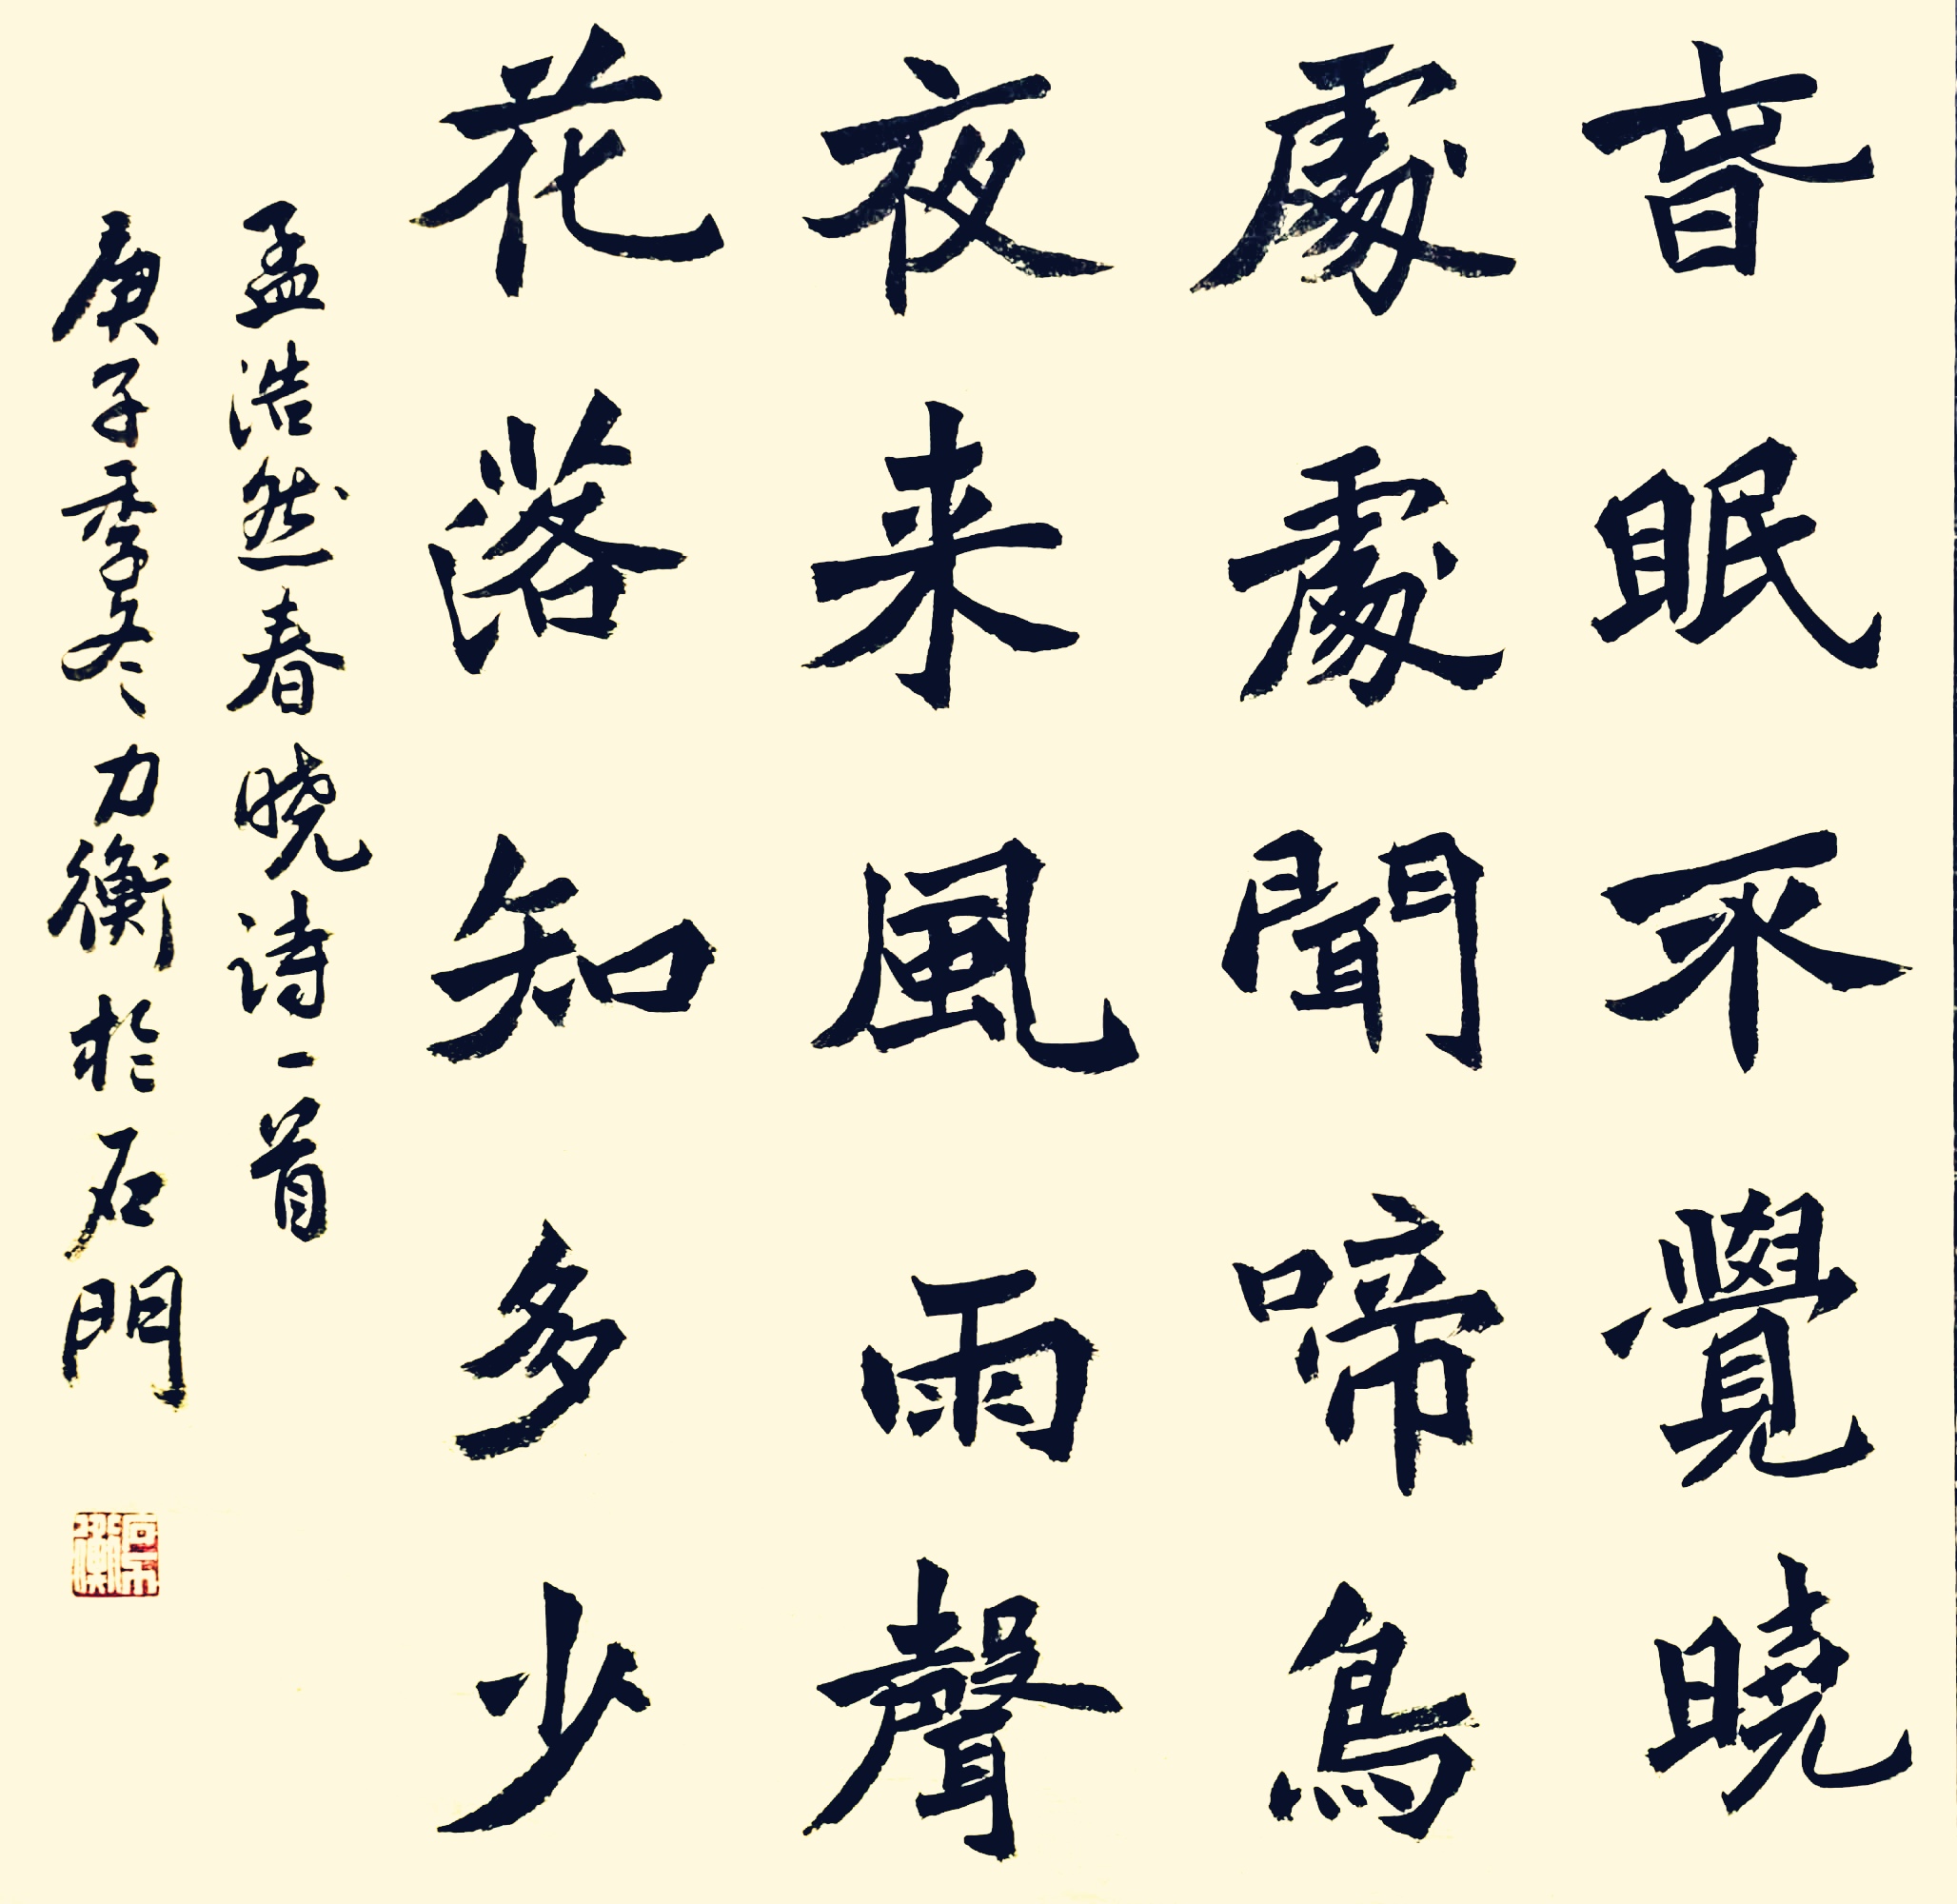 春眠不覺曉
處處聞啼鳥
夜来風雨聲
花落知多少
孟浩然春晓诗一首
庚子季冬力衡於石門